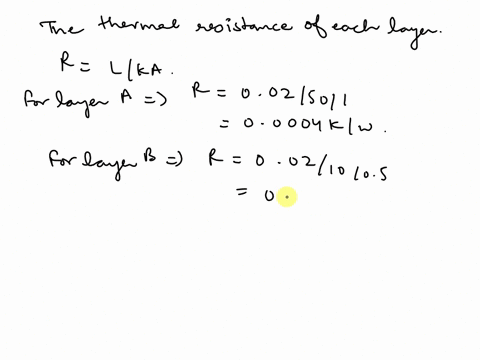 The thermal resistance of each layer.
R = L/kA.
for layer A => R = 0.02/50/1
= 0.0004 K/W.
for layer B => R = 0.02/10/0.5
= 0.